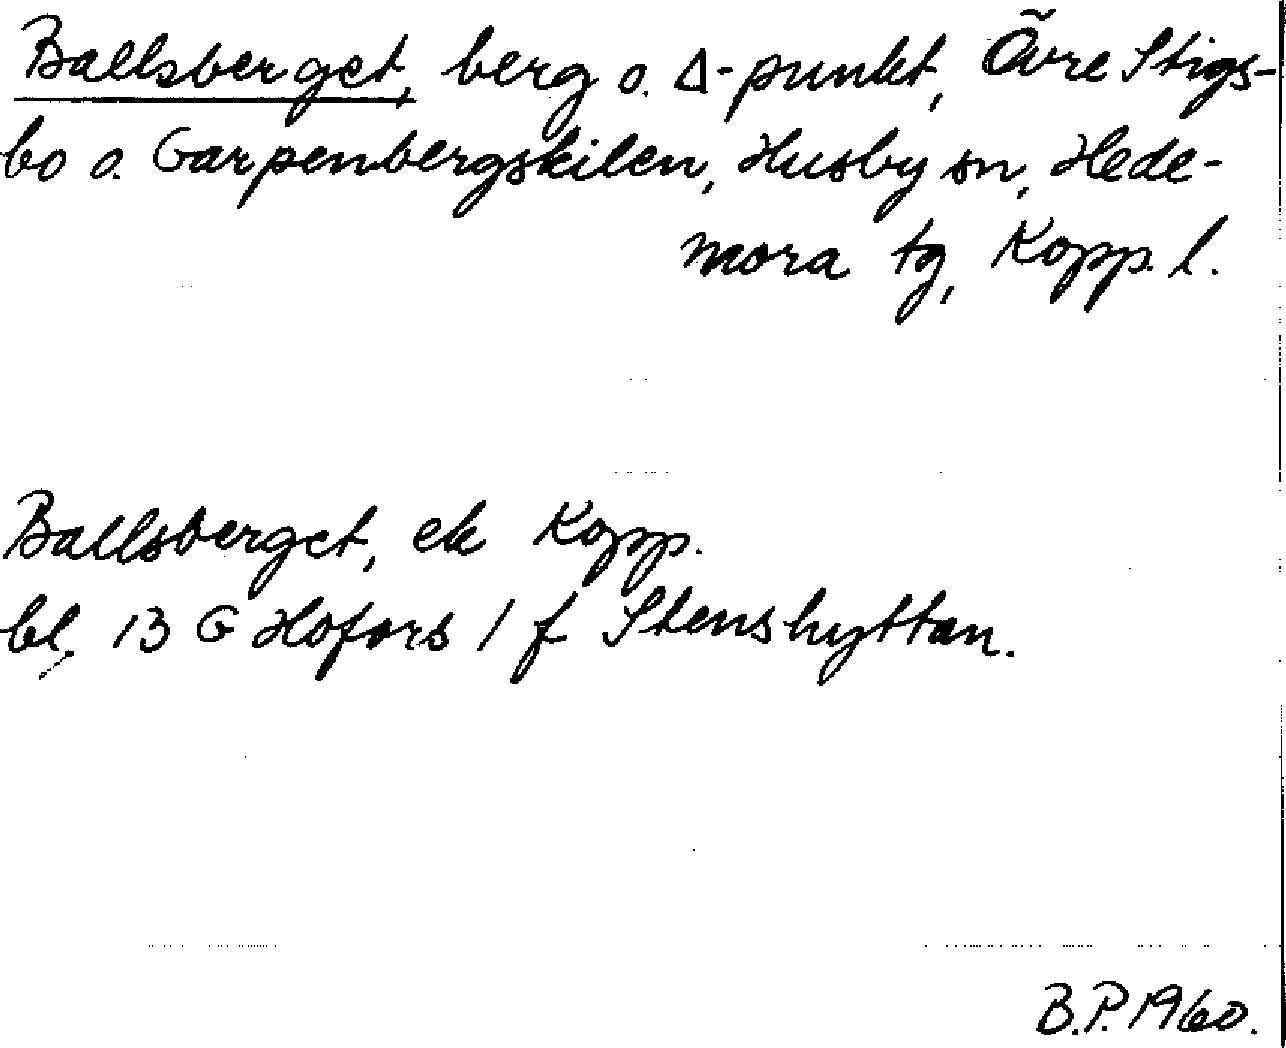 Ballsberget, berg o. Δ-punkt, Övre Stigs-
bo o. Garpenbergskilen, Husby sn, Hede-
mora tg, Kopp. l.
Ballsberget, ek Kopp.
bl. 13 G Hofors 1 f Stenshyttan.
B.P. 1960.